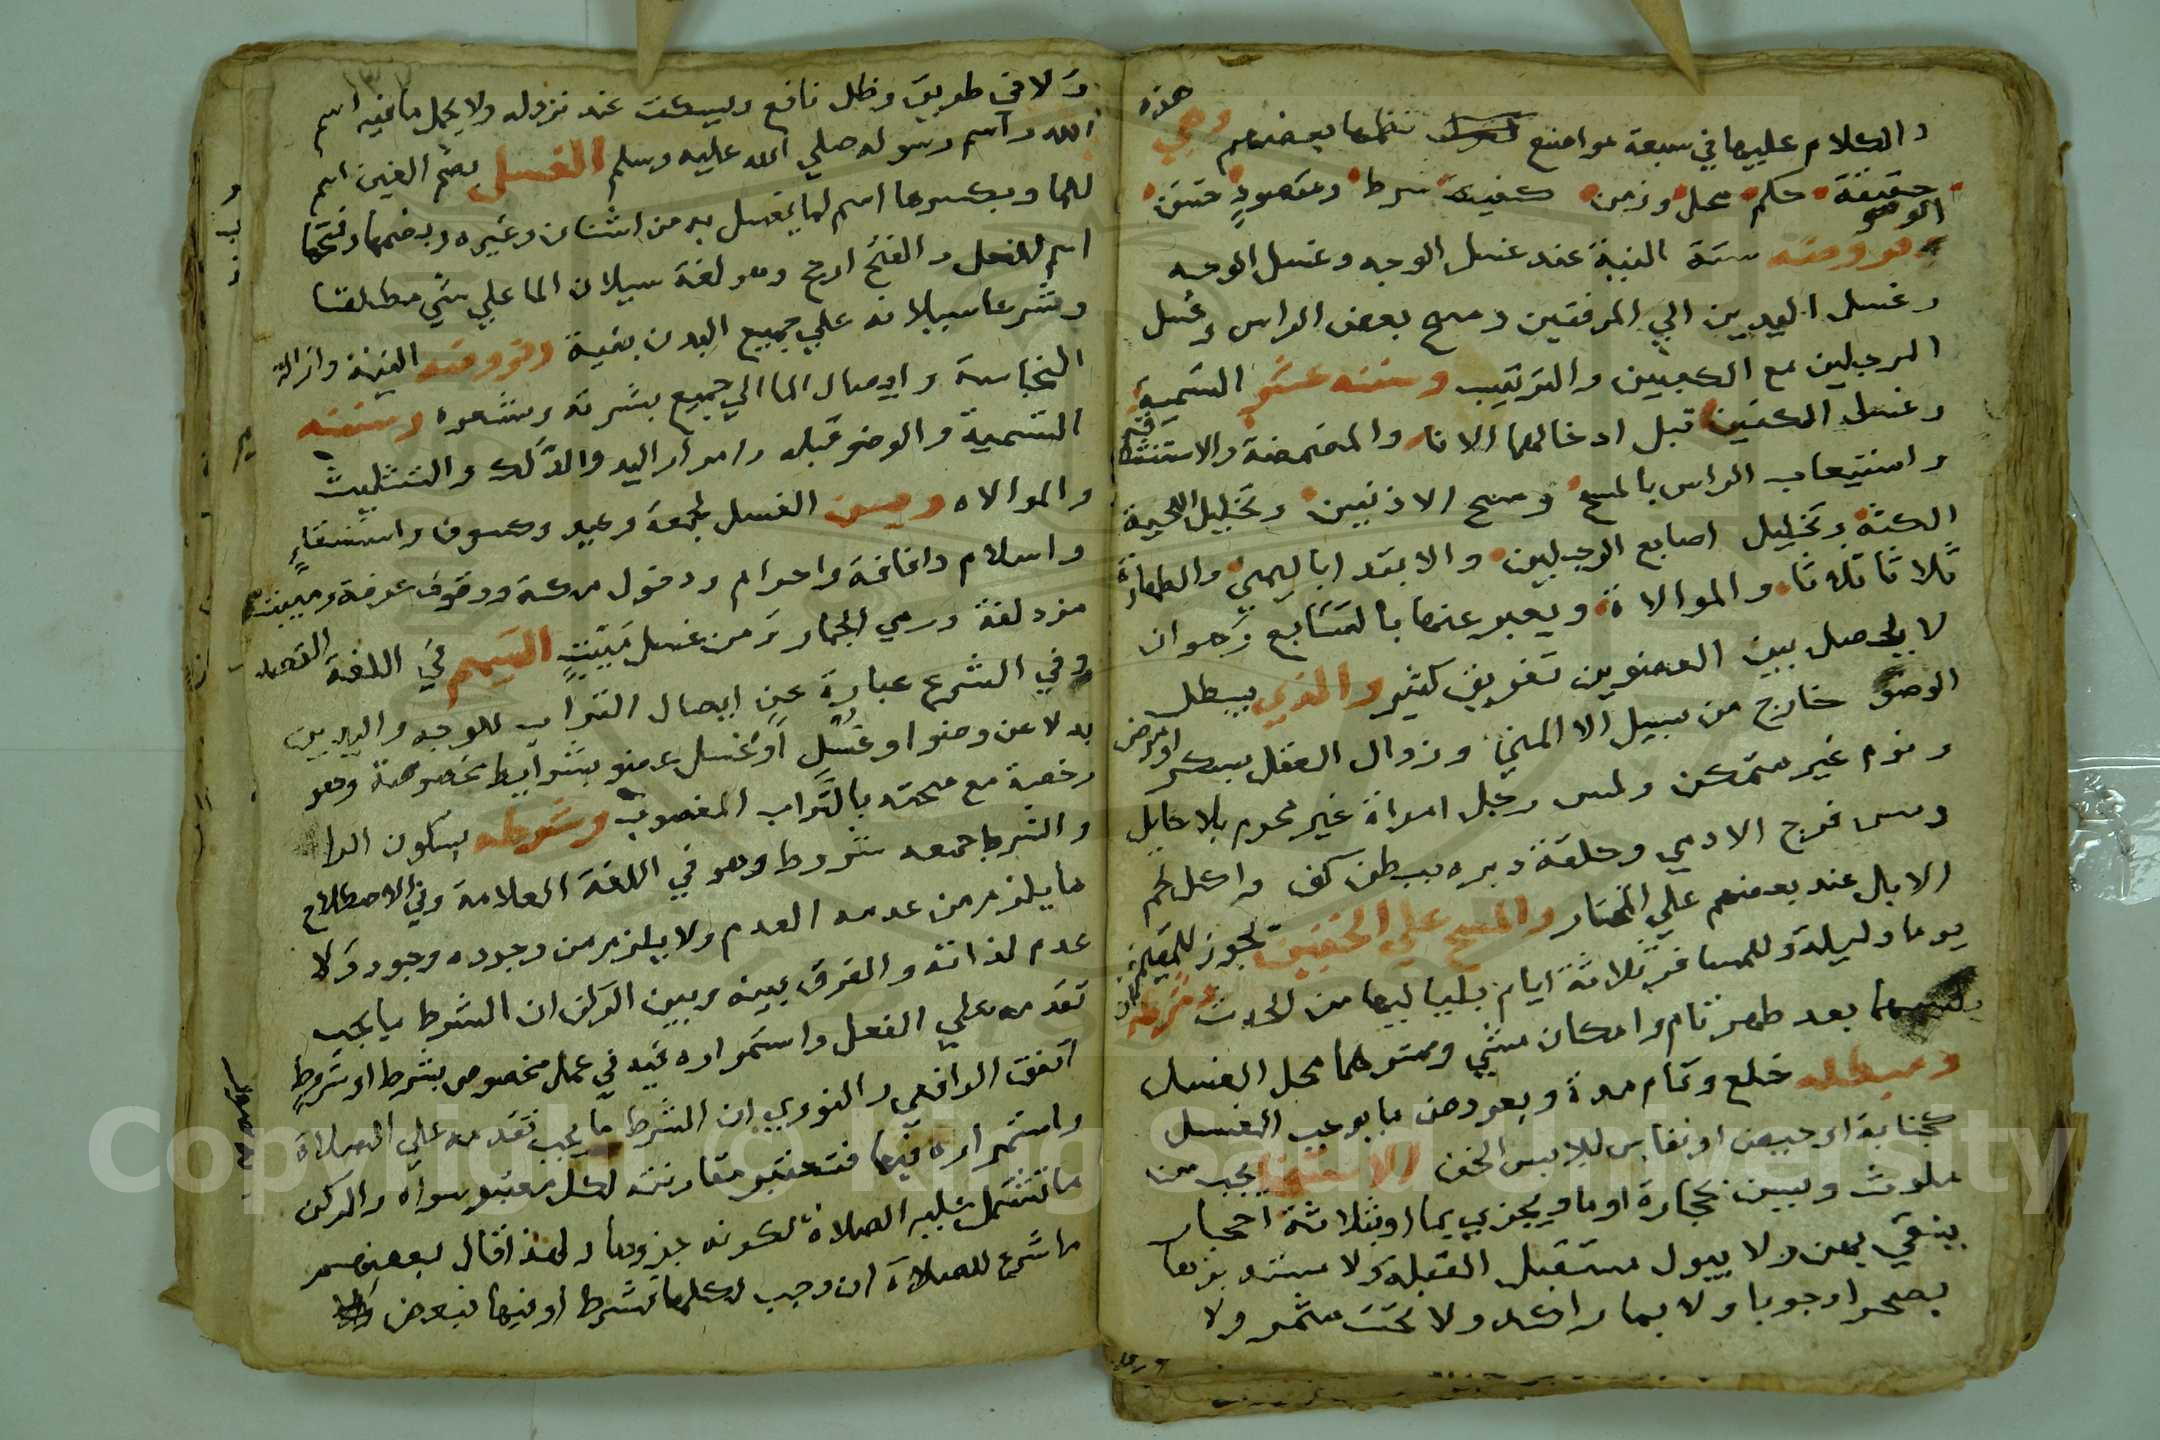 والكلام عليها في سبعة مواضع نظمها بعضهم وهي هذه
حقيقة حكم محل وزمن كيفية شرط ومقصود حسن
الوضو فروضه ستة النية عند غسل الوجه وغسل الوجه
وغسل اليدين الي المرفقين ومسح بعض الراس وغسل
الرجلين مع الكعبين والترتيب وسننه عشر التسمية
وغسل الكفين قبل ادخالهما الانا والمضمضة والاستنشاق
واستيعاب الراس بالمسح ومسح الاذنين وتخليل اللحية
الكثة وتخليل اصابع الرجلين والابتدا باليمني والطهارة
ثلاثا ثلاثا والموالاة ويعبر عنها بالتتابع وهوان
لا يحصل بين العضوين تفريق كثير والذي يبطل
الوضو خارج من سبيل الا المني وزوال العقل بسكر او مرض
ونوم غير متمكن ولمس رجل امراة غير محرم بلا حايل
ومس فرج الادمي وحلقة دبره ببطن كف واكل لحم
الابل عند بعضهم علي المختار والمسح علي الخفين يجوز للمقيم
يوما وليلة وللمسافر ثلاثة ايام بلياليها من الحدث وشرطه ان
يلبسهما بعد طهر تام وامكان مشي وسترهما محل الغسل
ومبطله خلع وتمام مدة وبعودهن ما يوجب الغسل
كجنابة او حيض او نفاس للابس الخف الاستنجا يجب من
ملوث وبين بحجارة او ما ويجزي بما او بثلاثة احجار
ينقي بهن ولا يبول مستقبل القبلة ولا مستدبرها
بصحرا وجوبا ولا بما راكد ولا تحت مثمر ولا
ولا في طريق وظل نافع ويسكت عند نزوله ولا يحمل ما فيه اسم
الله واسم رسوله صلي الله عليه وسلم الغسل بضم الغين اسم
للما وبكسرها اسم لما يغسل به من اشنان وغيره وبضمها وفتحها
اسم للفعل والفتح ارجح وهو لغة سيلان الما علي شي مطلقا
وشرعا سيلانه علي جميع البدن بنية وفروضه النية وازالة
النجاسة وايصال الما الي جميع بشرته وشعره وسننه
التسمية والوضو قبله وامرار اليد والدلك والتثليث
والموالاه ويسن الغسل لجمعة وعيد وكسوف واستسقاء
واسلام وافاقة واحرام ودخول مكة ووقوف عرفة ومبيت
مزدلفة ورمي الجمار ومن غسل ميت التيمم في اللغة القصد
وفي الشرع عبارة عن ايصال التراب للوجه واليدين
بدلا عن وضوا وغسل او غسل عضو بشرايط مخصوصة وهو
رخصة مع صحته بالتراب المغصوب وشروطه بسكون الرا
والشرط جمعه شروط وهو في اللغة العلامة وفي الاصطلاح
ما يلزم من عدمه العدم ولا يلزم من وجوده وجود ولا
عدم لذاته والفرق بينه وبين الركن ان الشرط ما يجب
تقدمه علي الفعل واستمراره فيه في عمل مخصوص بشرط او شروط
اتفق الرافعي والنووي ان الشرط ما يجب تقدمه علي الصلاة
واستمراره فيها فتعتبر مقارنته لكل معتبر سواه والركن
ما تشتمل عليه الصلاة لكونه جزوها ولهذا قال بعضهم
ما شرع للصلاة ان وجب لكلها فشرط او فيها فبعض
Copyright © King Saud University